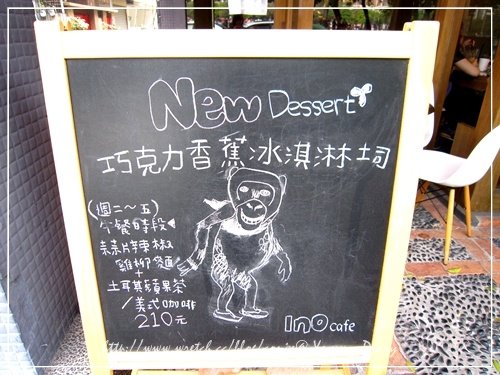 New Dessert
巧克力香蕉冰淇淋土司
(週二～五)
午餐時段
蒜片辣椒
雞柳麵
+
土耳其蘋果茶
/美式咖啡
210元
Ino cafe